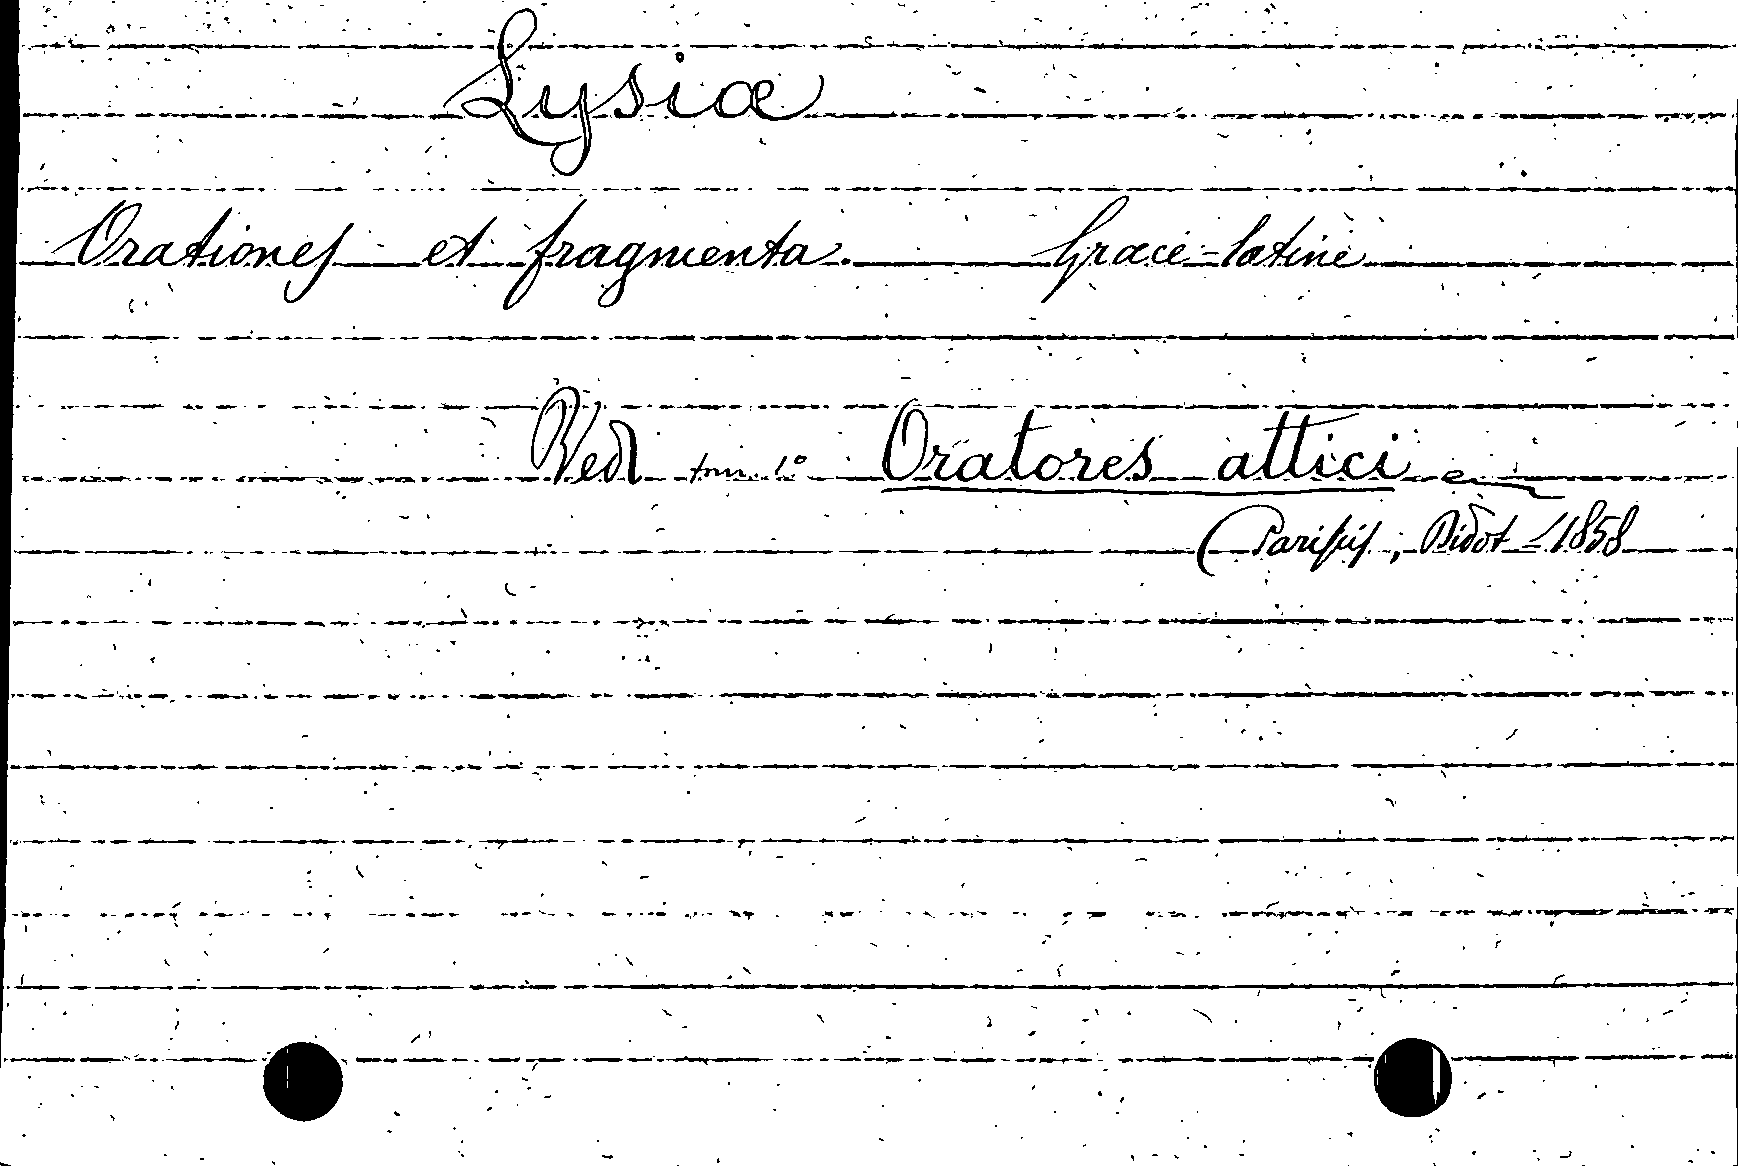 Lysiæ
Orationes et fragmenta. Græce-latine
Vedi tom. 1º Oratores attici
(Parisiis, Didot - 1858